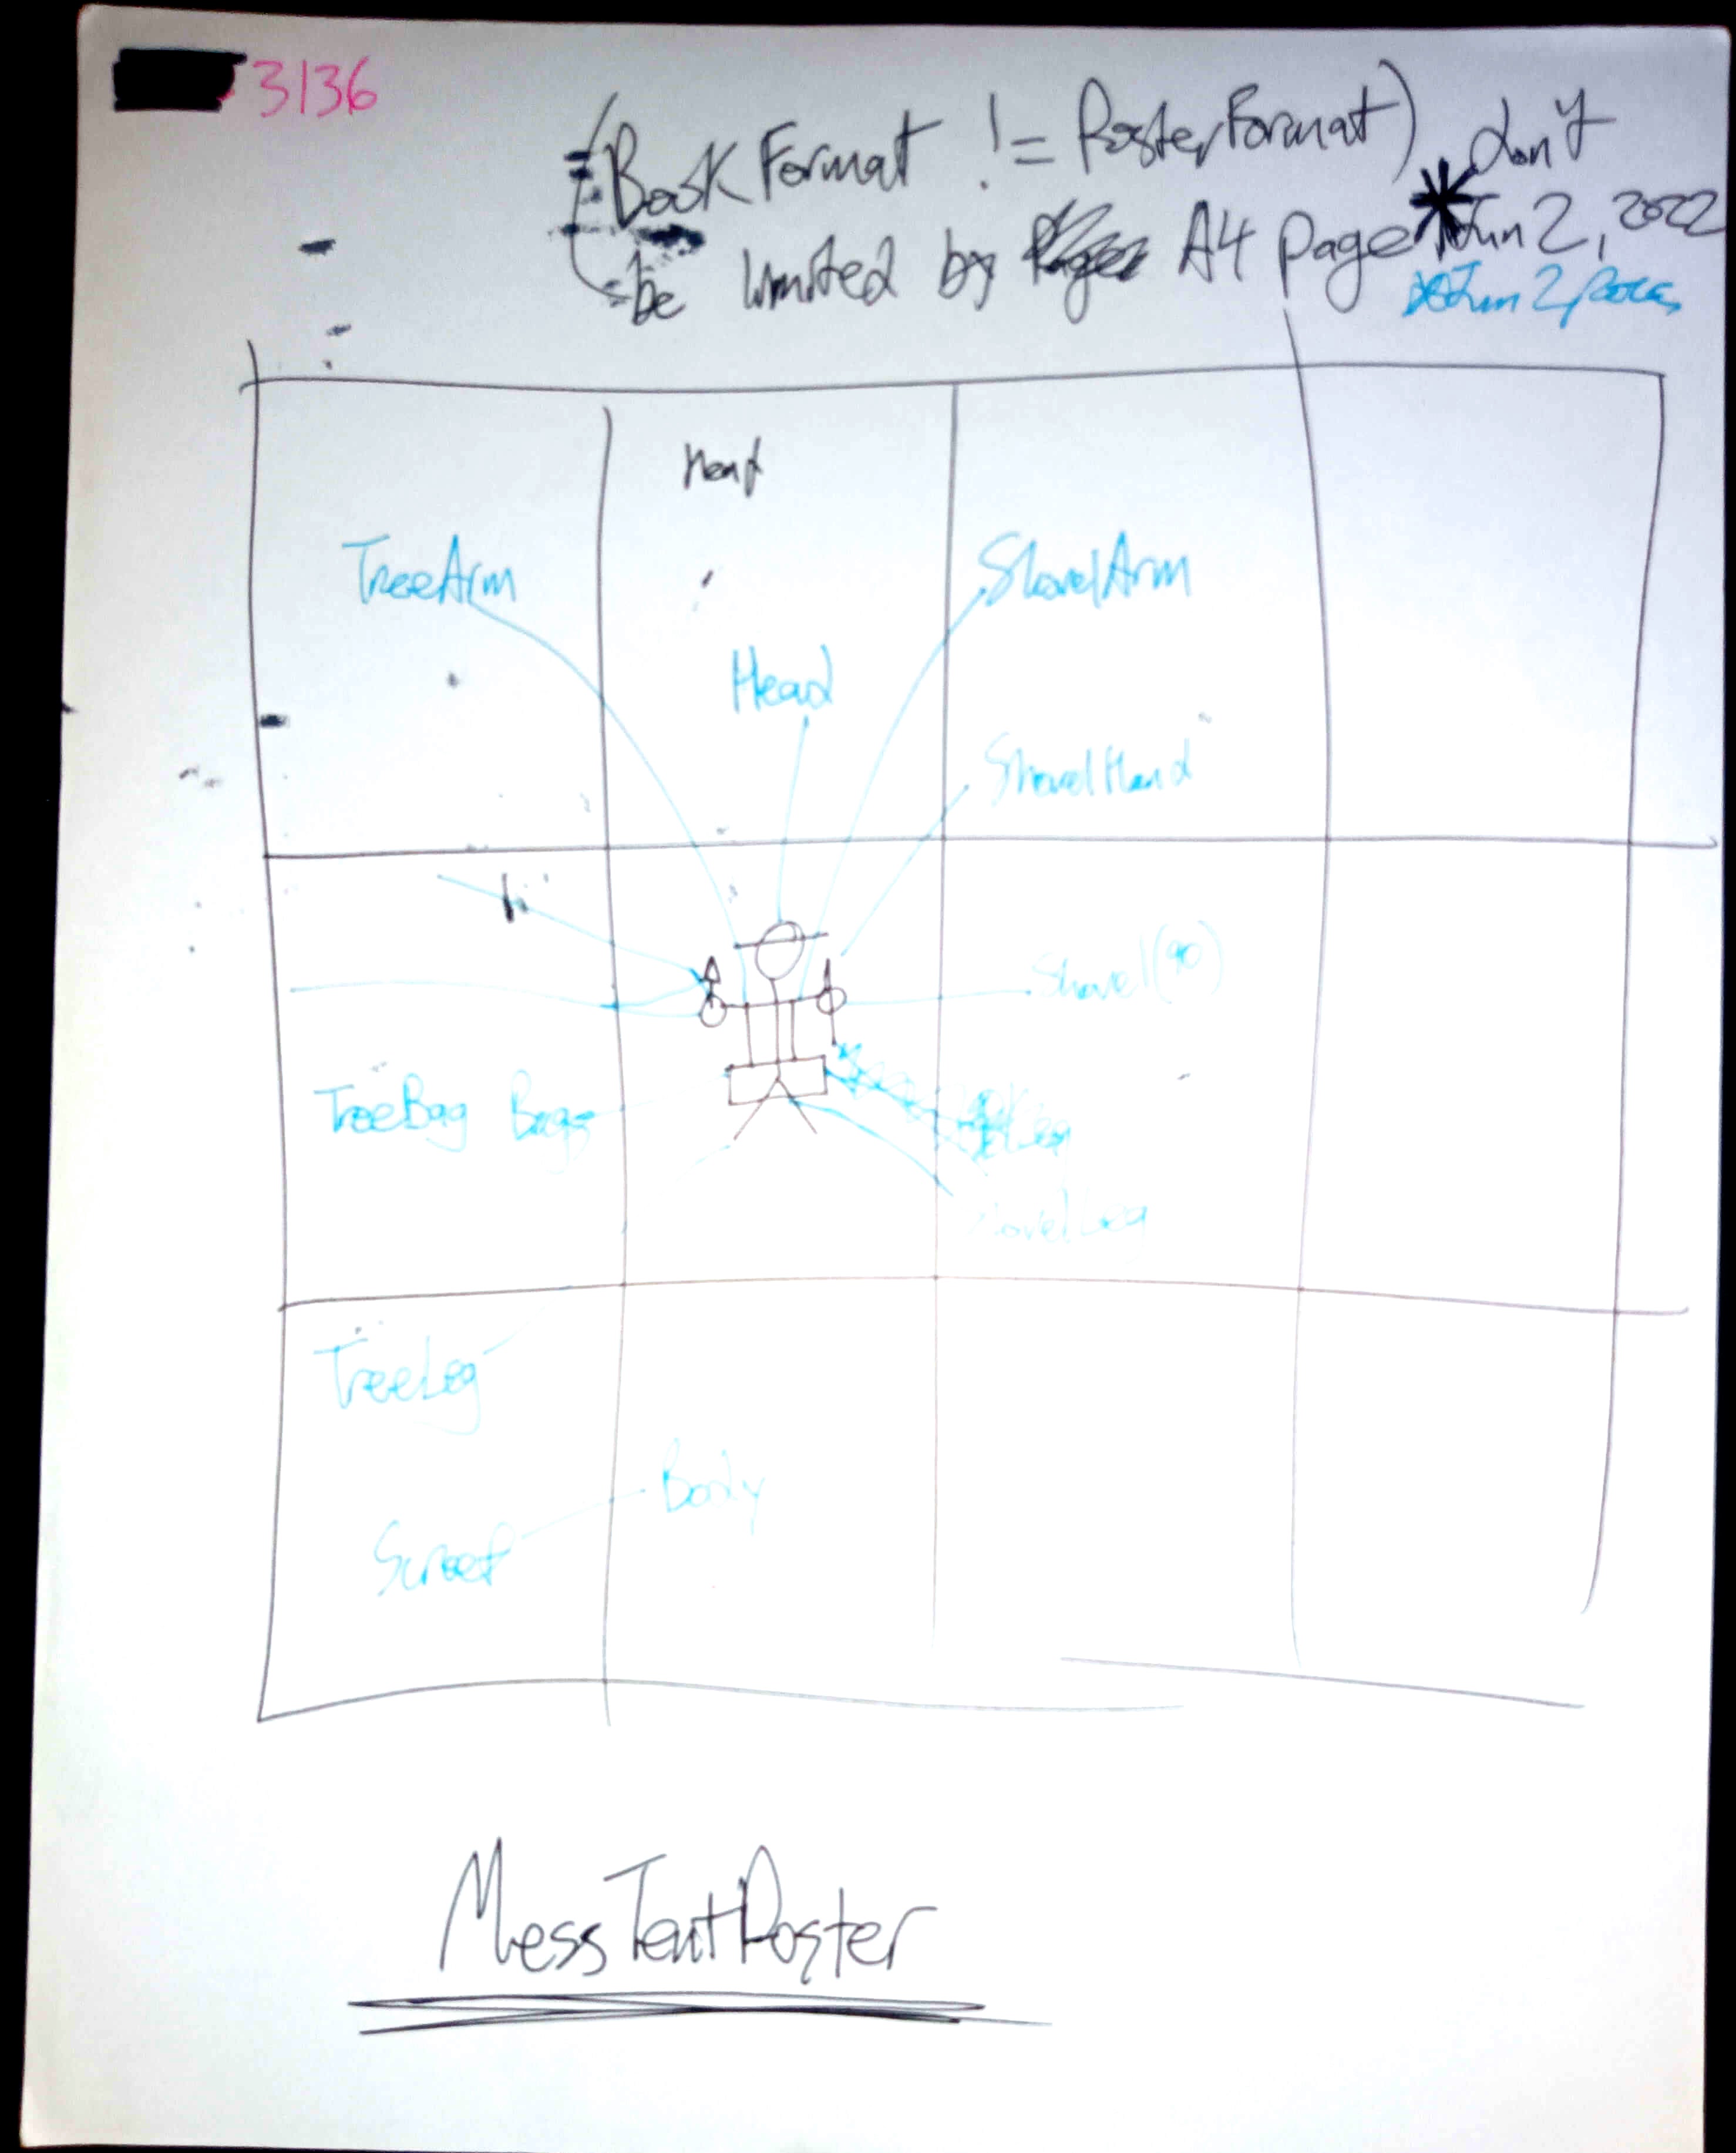 3136
(BookFormat != PosterFormat) don't
be limited by A4 page Jun 2, 2022
Jun 2
Head
TreeArm
ShovelArm
Head
ShovelHand
Shovel(90)
TreeBag Bags
Leg
ShovelLeg
TreeLeg
Body
MessTentPoster